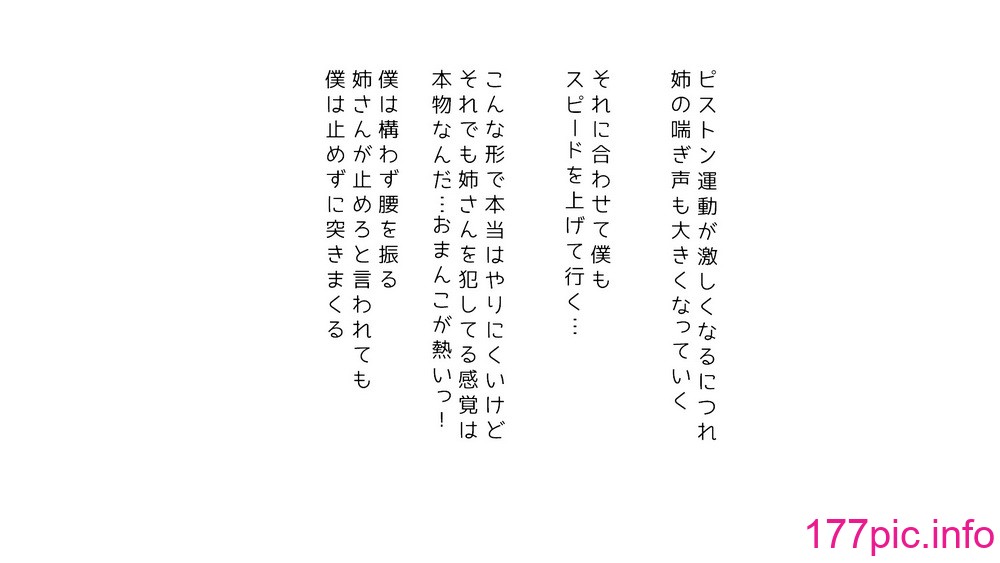 ピストン運動が激しくなるにつれ
姉の喘ぎ声も大きくなっていく
それに合わせて僕も
スピードを上げて行く…
こんな形で本当はやりにくいけど
それでも姉さんを犯してる感覚は
本物なんだ…おまんこが熱いっ！
僕は構わず腰を振る
姉さんが止めろと言われても
僕は止めずに突きまくる
177pic.info